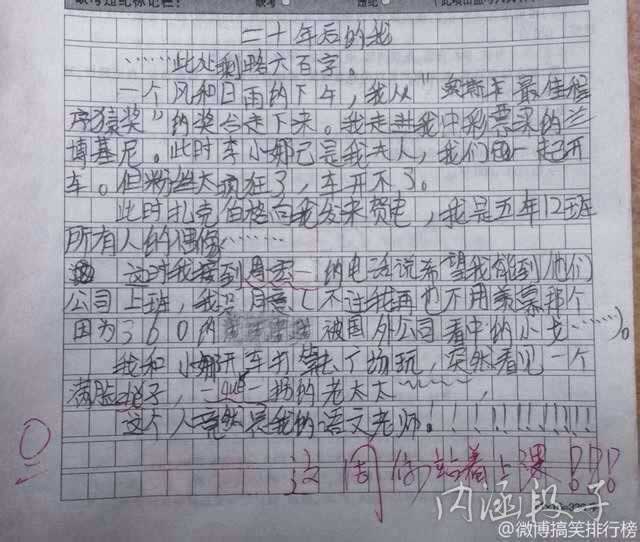 二十年后的我
……此处剩略六百字。
一个风和日雨的下午，我从“奥斯卡最佳程
序猿奖”的奖台走下来。我走进我中彩票买的兰
博基尼。此时李小娜已是我夫人，我们一起开
车。但粉丝太疯狂了，车开不了。
此时扎克伯格向我发来贺电，我是五年12班
所有人的偶像……
这时我接到周一的电话说希望我能到他们
公司上班，我没同意（不过我再也不用羡慕那个
因为360的被国外公司看中的小龙……）。
我和小娜开车打算去广场玩，突然看见一个
满脸胡子，一一拐的老太太~~~~~，
这个人竟然是我的语文老师！！！！！！！！！！
0
这周你站着上课！！！
内涵段子
@微博搞笑排行榜